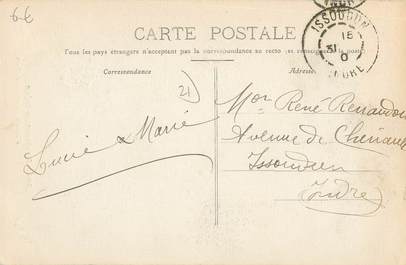 6€
CARTE POSTALE
Tous les pays étrangers n'acceptent pas la correspondance au recto (se renseigner à la poste)
Correspondance
Adresse
ISSOUDUN
15
31
0
INDRE
21
Lucie & Marie
Mor René Renaudon
Avenue de
Issoudun
Indre